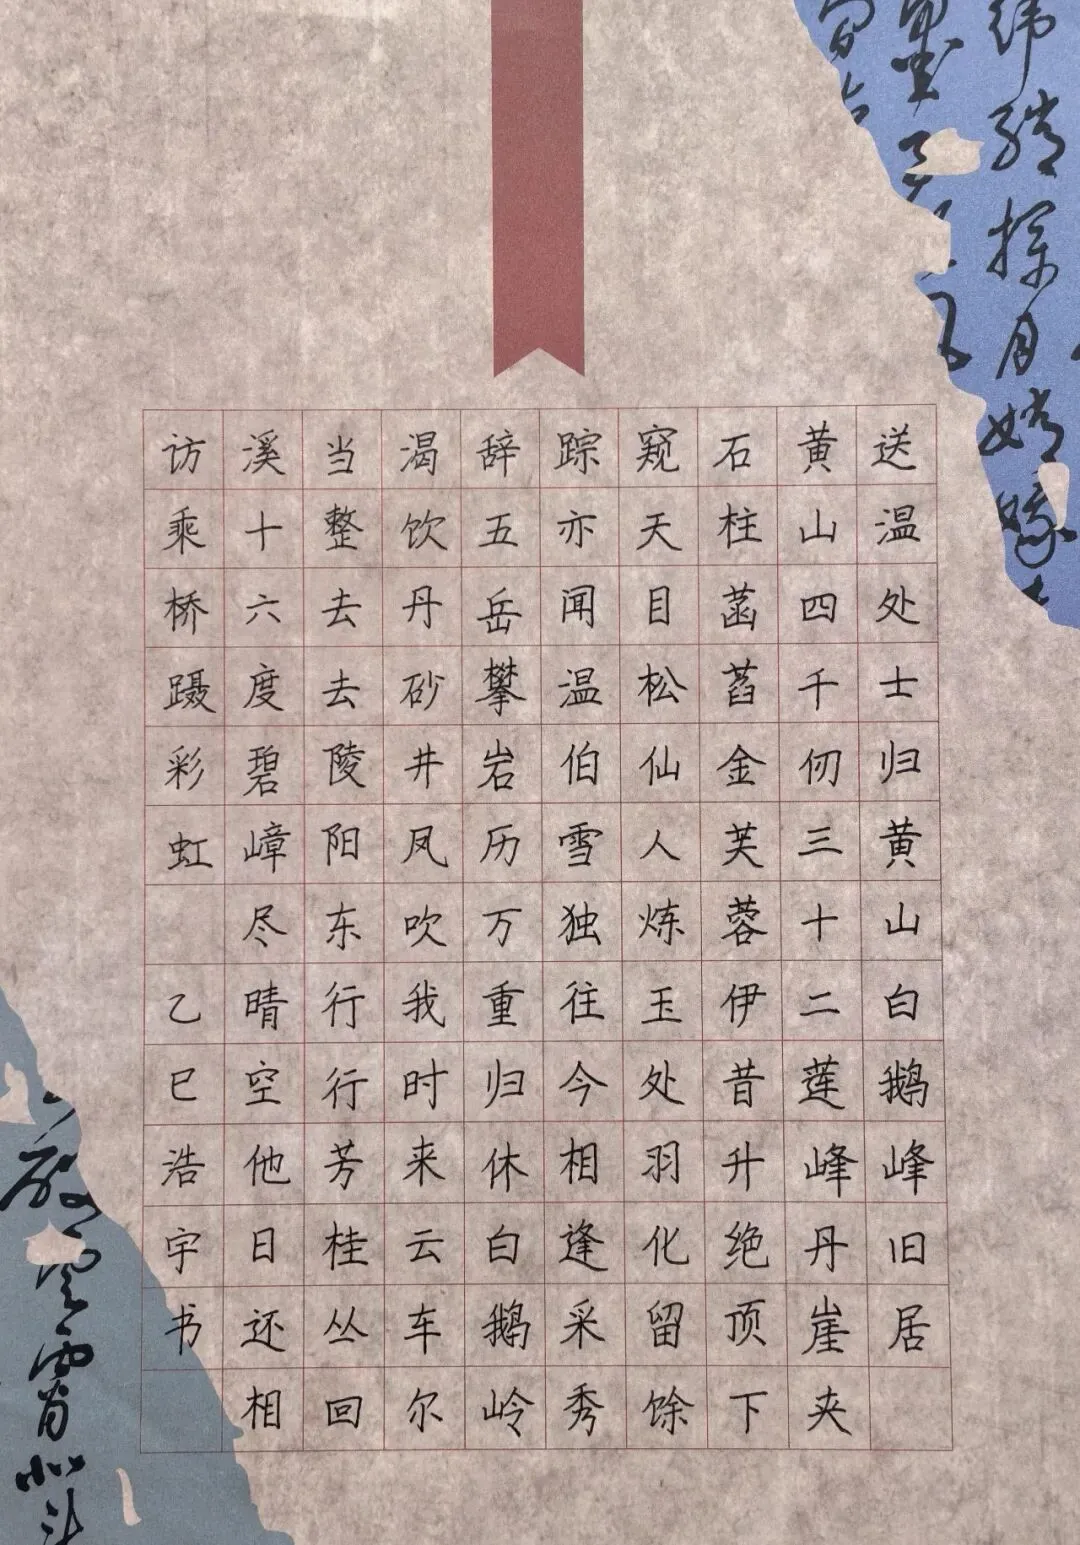 送温处士归黄山白鹅峰旧居
黄山四千仞三十二莲峰丹崖夹
石柱菡萏金芙蓉伊昔升绝顶下
窥天目松仙人炼玉处羽化留馀
踪亦闻温伯雪独往今相逢采秀
辞五岳攀岩历万重归休白鹅岭
渴饮丹砂井凤吹我时来云车尔
当整去去陵阳东行行芳桂丛回
溪十六度碧嶂尽晴空他日还相
访乘桥蹑彩虹 乙巳浩宇书